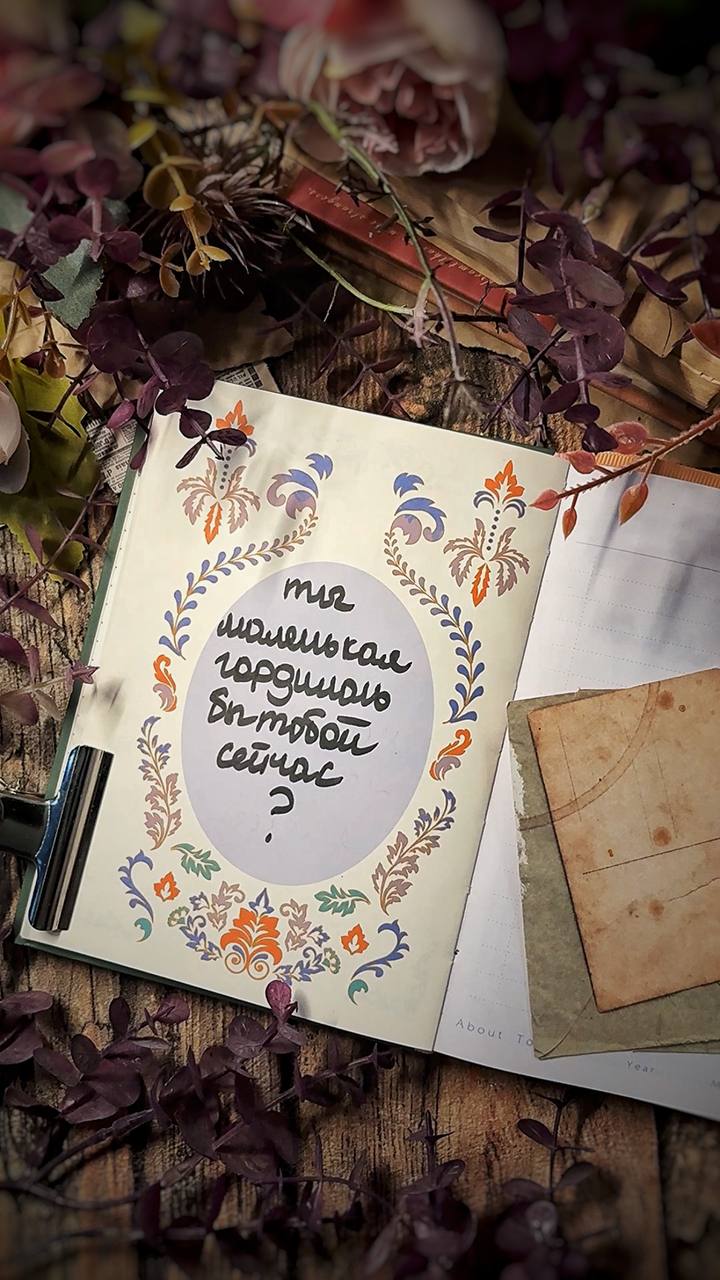 ты
маленькая
гордилась
бы тобой
сейчас
?
About To
Year